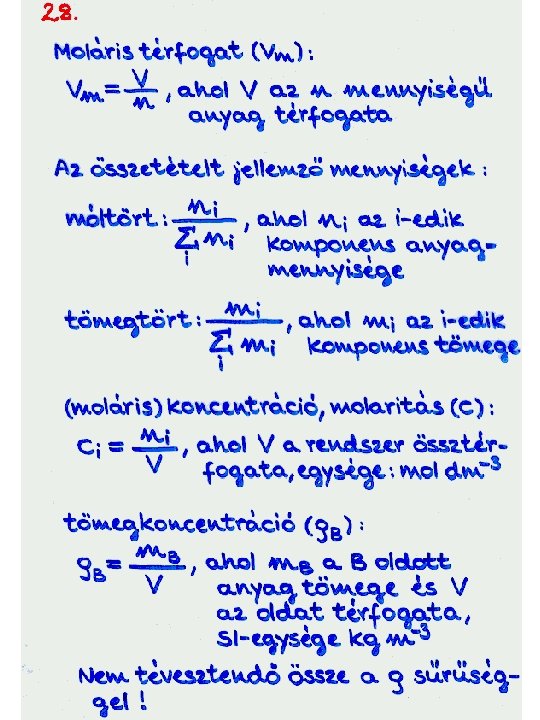 28.
Moláris térfogat (Vm):
Vm = V/n , ahol V az n mennyiségű
anyag térfogata
Az összetételt jellemző mennyiségek :
móltört: ni / Σi ni , ahol ni az i-edik
komponens anyag-
mennyisége
tömegtört: mi / Σi mi , ahol mi az i-edik
komponens tömege
(moláris) koncentráció, molaritás (c):
ci = ni/V , ahol V a rendszer össztér-
fogata, egysége: mol dm⁻³
tömegkoncentráció (ρB):
ρB = mB/V , ahol mB a B oldott
anyag tömege és V
az oldat térfogata,
SI-egysége kg m⁻³
Nem tévesztendő össze a ρ sűrűség-
gel !